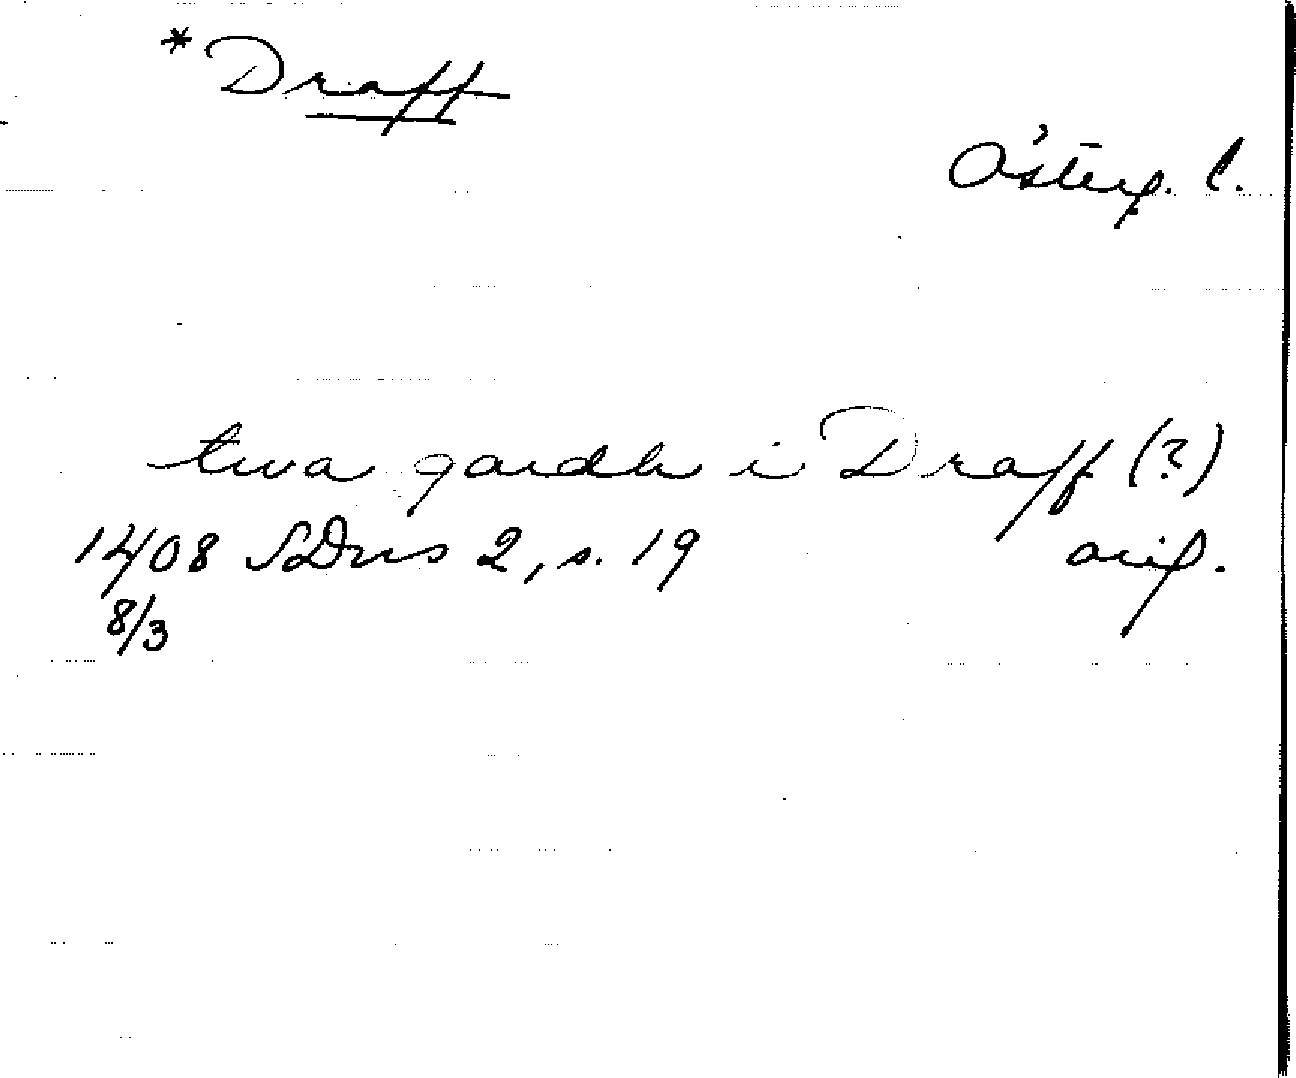 *Draff
Österg. l.
twa gardh i Draff (?)
1408 SDns 2, s. 19 orig.
8/3